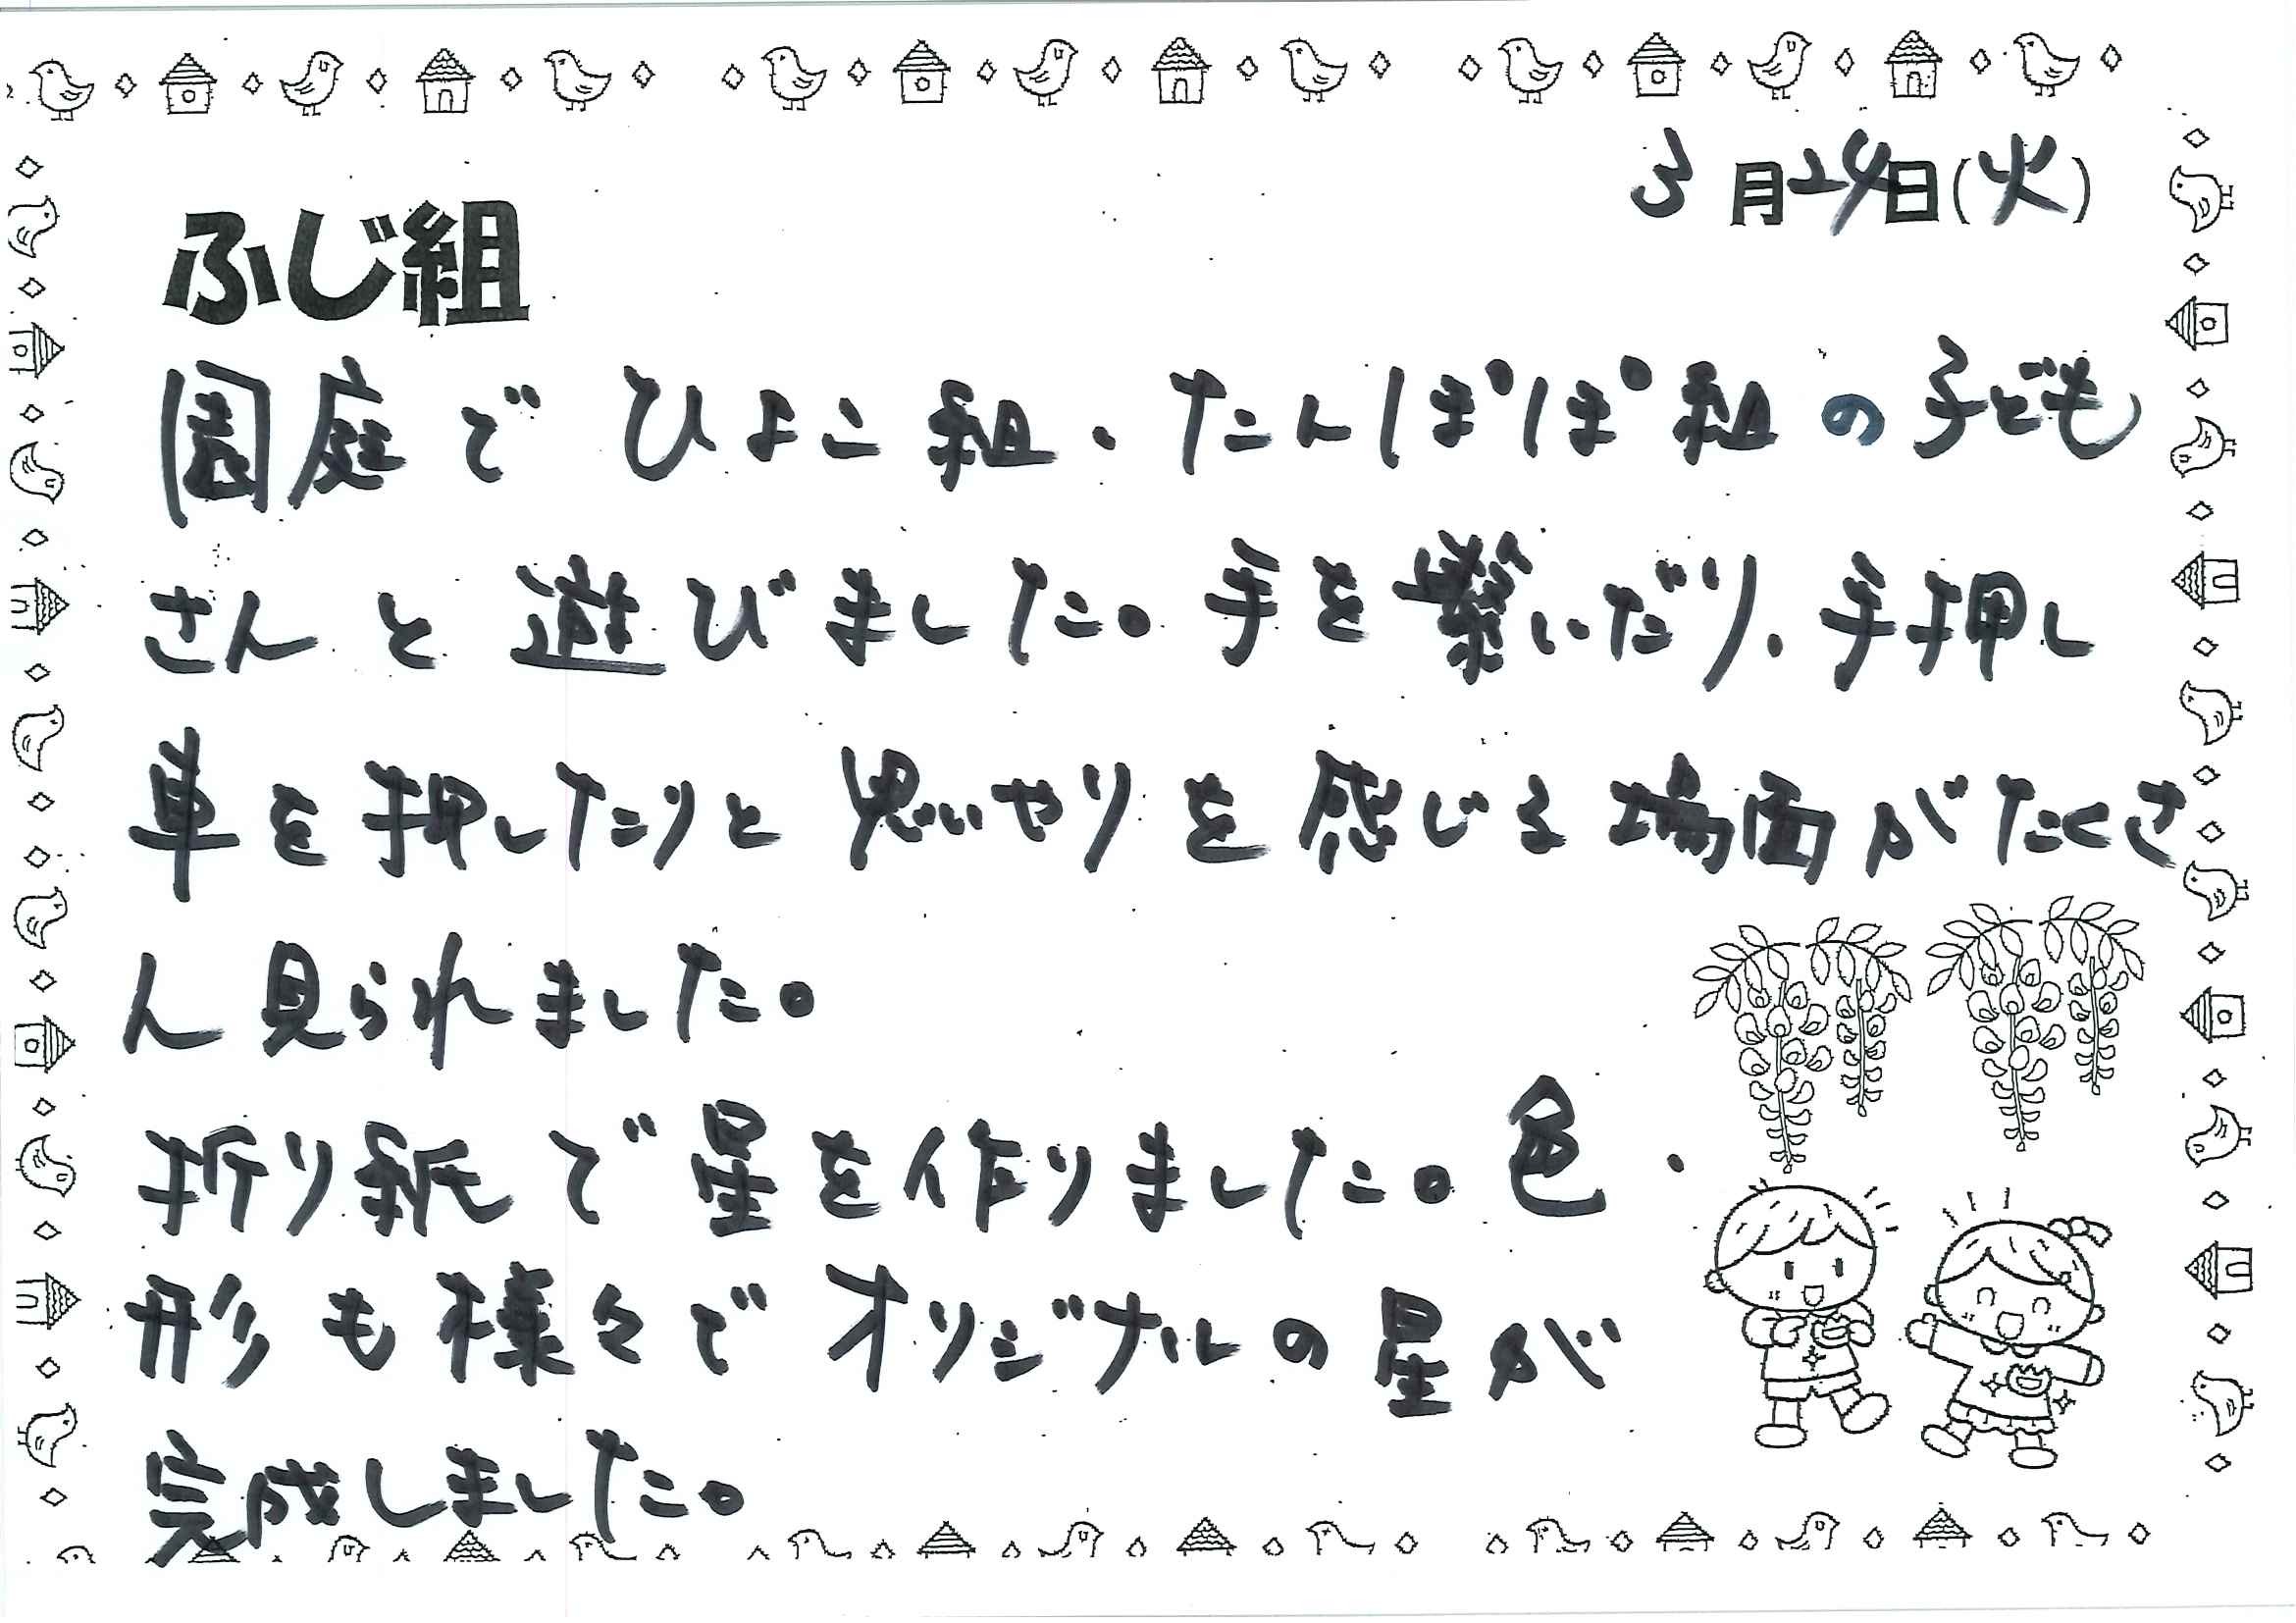 3月24日(火)
ふじ組
園庭でひよこ組、たんぽぽ組の子ども
さんと遊びました。手を繋いだり、手押し
車を押したりと思いやりを感じる場面がたくさ
ん見られました。
折り紙で星を作りました。色、
形も様々でオリジナルの星が
完成しました。